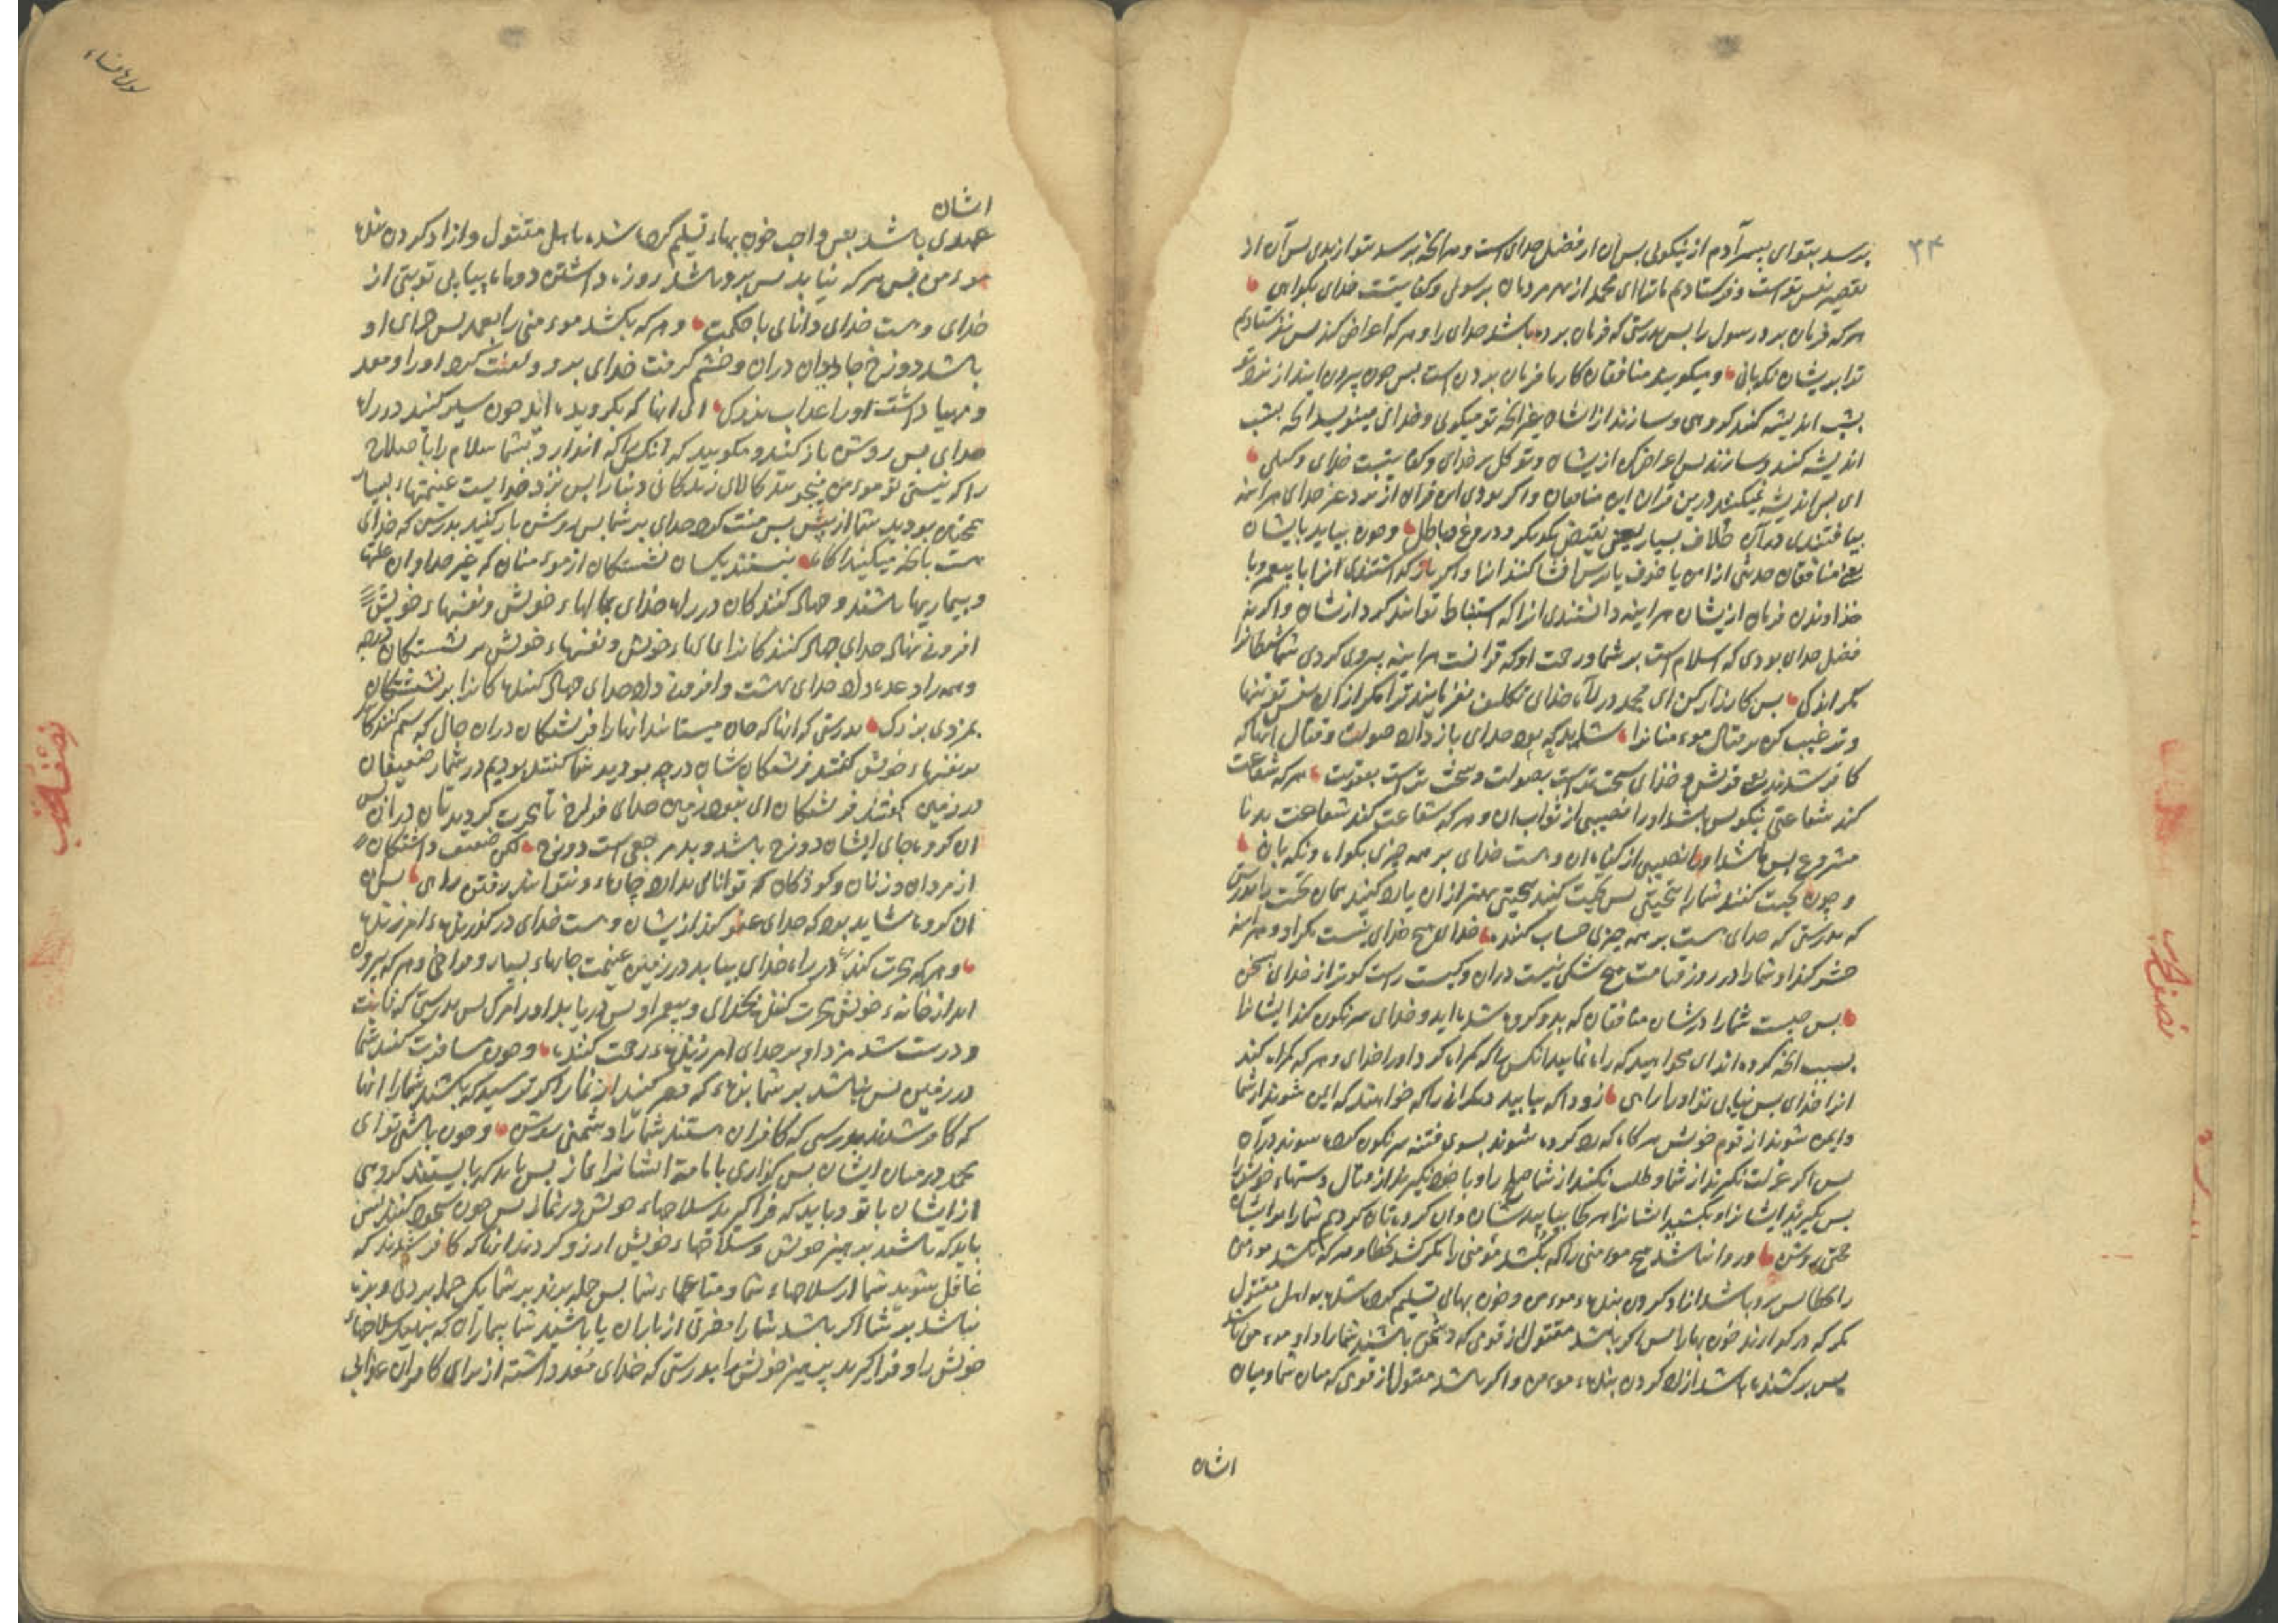 ۳۴
برسد بتو ای پسر آدم از نیکوئی بس آن از فضل خدای است و هر انچه برسد بتو از بدی بس آن از
تقصیر نفس تو است و فرستادیم ما ترا ای محمد از بهر مردمان برسولی و کفایتست خدای بگواهی
هر که فرمان برد رسول را بس بدرستی که فرمان برده باشد خدای را و هر که اعراض کند بس نفرستادیم
ترا بریشان نگهبانی و میگویند منافقان کار ما فرمان بردن است بس چون بیرون ایند از نزد تو
بشب اندیشه کنند گروهی و سازند از ایشان غیر انچه تو میگوئی و خدای مینویسد انچه بشب
اندیشه کنند و سازند بس اعراض کن ازیشان و توکل بر خدای و کفایتست خدای وکیلی
ای بس اندیشه نمیکنند درین قران این منافقان و اگر بودی این قران از نزد غیر خدای هراینه
بیافتندی در آن خلاف بسیار یعنی نقیض یکدیگر و دروغ و باطل و چون بیاید بایشان
یعنی منافقان حدیثی از امن یا خوف یا ترس افشا کنند انرا و اگر باز گذاشتندی انرا با پیغمبر و با
خداوندان فرمان ازیشان هراینه دانستندی انرا که استنباط توانند کرد ازیشان و اگر نه
فضل خدای بودی که اسلام است بر شما و رحمت او که قرانست هراینه پیروی کردی شما شیطانرا
مگر اندکی بس کارزار کن ای محمد در راه خدای تکلیف نفرمایند ترا مگر از آن نفس تو تنها
و ترغیب کن بر قتال موءمنانرا شاید که بود خدای باز دارد صولت و قتال انها که
کافر شدند یعنی قریش و خدای سخت تر است بصولت و سخت تر است بعقوبت هر که شفاعت
کند شفاعتی نیکو بس باشد او را نصیبی از ثواب ان و هر که شفاعت کند شفاعت بد نا
مشروع بس باشد او را نصیبی از گناه ان و هست خدای بر همه چیزی بگواه و نگهبان
و چون تحیت کنند شما را بتحیتی بس تحیت کنید بتحیتی بهتر از آن یا رد کنید همان تحیت را بدرستی
که بدرستی که خدای هست بر همه چیزی حساب کننده خدای هیچ خدای نیست مگر او هراینه
حشر کند او شما را در روز قیامت هیچ شکی نیست در ان و کیست راست گوتر از خدای بسخن
بس چیست شما را در شان منافقان که بدو گروه شده اید و خدای سرنگون کند ایشانرا
بسبب انچه کرده اند ای میخواهید که راه نمایید انکس را که گمراه کرد او را خدای و هر که گمراه کند
انرا خدای بس نیابی تو او را راهی زود که بیابید دیگرانی را که خواهند که ایمن شوند از شما
و ایمن شوند از قوم خویش هر گاه که رد کرده شوند بسوی فتنه سرنگون کرده شوند در آن
بس اگر عزلت نگیرند از شما و طلب نکنند از شما صلح را و باز نگیرند از قتال دستهاء خویش را
بس بگیرید ایشانرا و بکشید ایشانرا هر کجا بیابید شان و ان گروه تان کردیم شما را بر ایشان
حجتی روشن و روا نباشد هیچ موءمنی را که بکشد مؤمنی را مگر کشد بخطا و هر که بکشد موءمن
را بخطا بس برو باشد ازاد کردن بنده موءمن و خون بهائی تسلیم کرده شده به اهل مقتول
مگر که در گذارند خون بها را بس اگر باشد مقتول از قومی که دشمن باشند شما را و او موءمن باشد
بس بر کشنده باشد ازاد کردن بنده موءمن و اگر باشد مقتول از قومی که میان شما و میان
اشان
اشان
عهدی باشد بس واجب خون بهاء تسلیم کرده شده باهل مقتول و ازاد کردن بنده
موءمن بس هر که نیابد بس برو باشد روزه داشتن دو ماه پیاپی توبتی از
خدای و هست خدای دانای با حکمت و هر که بکشد موءمنی را بعمد بس جزای او
باشد دوزخ جاویدان دران و خشم گرفت خدای برو و لعنت کرد او را و معد
و مهیا داشت او را عذاب بزرگ ای انها که بگرویده اید چون سیر کنید در راه
خدای بس روشن باز کنید و مگویید که انکس را که اندازد بشما سلام را یا صلاح
را که نیستی تو موءمن میجویید کالای زندگانی دنیا را بس نزد خدایست غنیمتهاء بسیار
همچنان بودید شما از پیش بس منت کرد خدای بر شما بس روشن باز کنید بدرستی که خدای
هست بانچه میکنید اگاه نیستند یکسان نشستگان از موءمنان که غیر خداوندان علتها
و بیماریها باشند و جهاد کنندگان در راه خدای بمالهاء خویش و نفسهاء خویش
افزونی نهاد خدای جهاد کنندگانرا بمالهاء خویش و نفسهاء خویش بر نشستگان درجه
و همه را وعده داد خدای بهشت و افزونی داد خدای جهاد کنندگانرا بر نشستگان
بمزدی بزرگ بدرستی که انها که جان میستانند انها را فریشتگان دران حال که ستم کنندگان
بر نفسهاء خویش گفتند فریشتگان شان در چه بودید شما گفتند بودیم در شمار ضعیفان
در زمین گفتند فریشتگان ای نبود زمین خدای فراخ تا هجرت کردید تان دران بس
ان گروه جای ایشان دوزخ باشد و بد مرجعی است دوزخ لکن ضعیف داشتگان
از مردان و زنان و کودکان که توانائی ندارند چاره و نتوانند رفتن راهی بس
ان گروه شاید بود که خدای عفو کند ازیشان و هست خدای در گذرنده امرزنده
و هر که هجرت کند در راه خدای بیابد در زمین غنیمت جایهاء بسیار و فراخی و هر که بیرون
اید از خانهء خویش هجرت کننده بخدای و پیغمبر او بس دریابد او را مرگ بس بدرستی که ثابت
و درست شد مزد او بر خدای امرزنده رحمت کننده و چون مسافرت کنید شما
در زمین بس نباشد بر شما بزه که قصر کنید از نماز اگر ترسید که بکشند شما را انها
که کافر شدند بدرستی که کافران هستند شما را دشمنی روشن و چون باشی تو ای
محمد در میان ایشان بس گزاری بامامت ایشانرا نماز بس باید که بایستند گروهی
ازایشان با تو و باید که فرا گیرند سلاحهاء خویش در نماز بس چون سجود کنند بس
باید که باشند پرهیز خویش و سلاحهاء خویش ارزو کردند انانکه کافر شدند که
غافل شوید شما از سلاحهاء شما و متاعهاء شما بس حمله برند بر شما یک حمله بردنی و بزه
نباشد بر شما اگر باشد شما را مضرتی از باران یا باشید شما بیماران که بنهید سلاحهاء
خویش را و فرا گیرید پرهیز خویش را بدرستی که خدای معد داشته از برای کافران عذابی